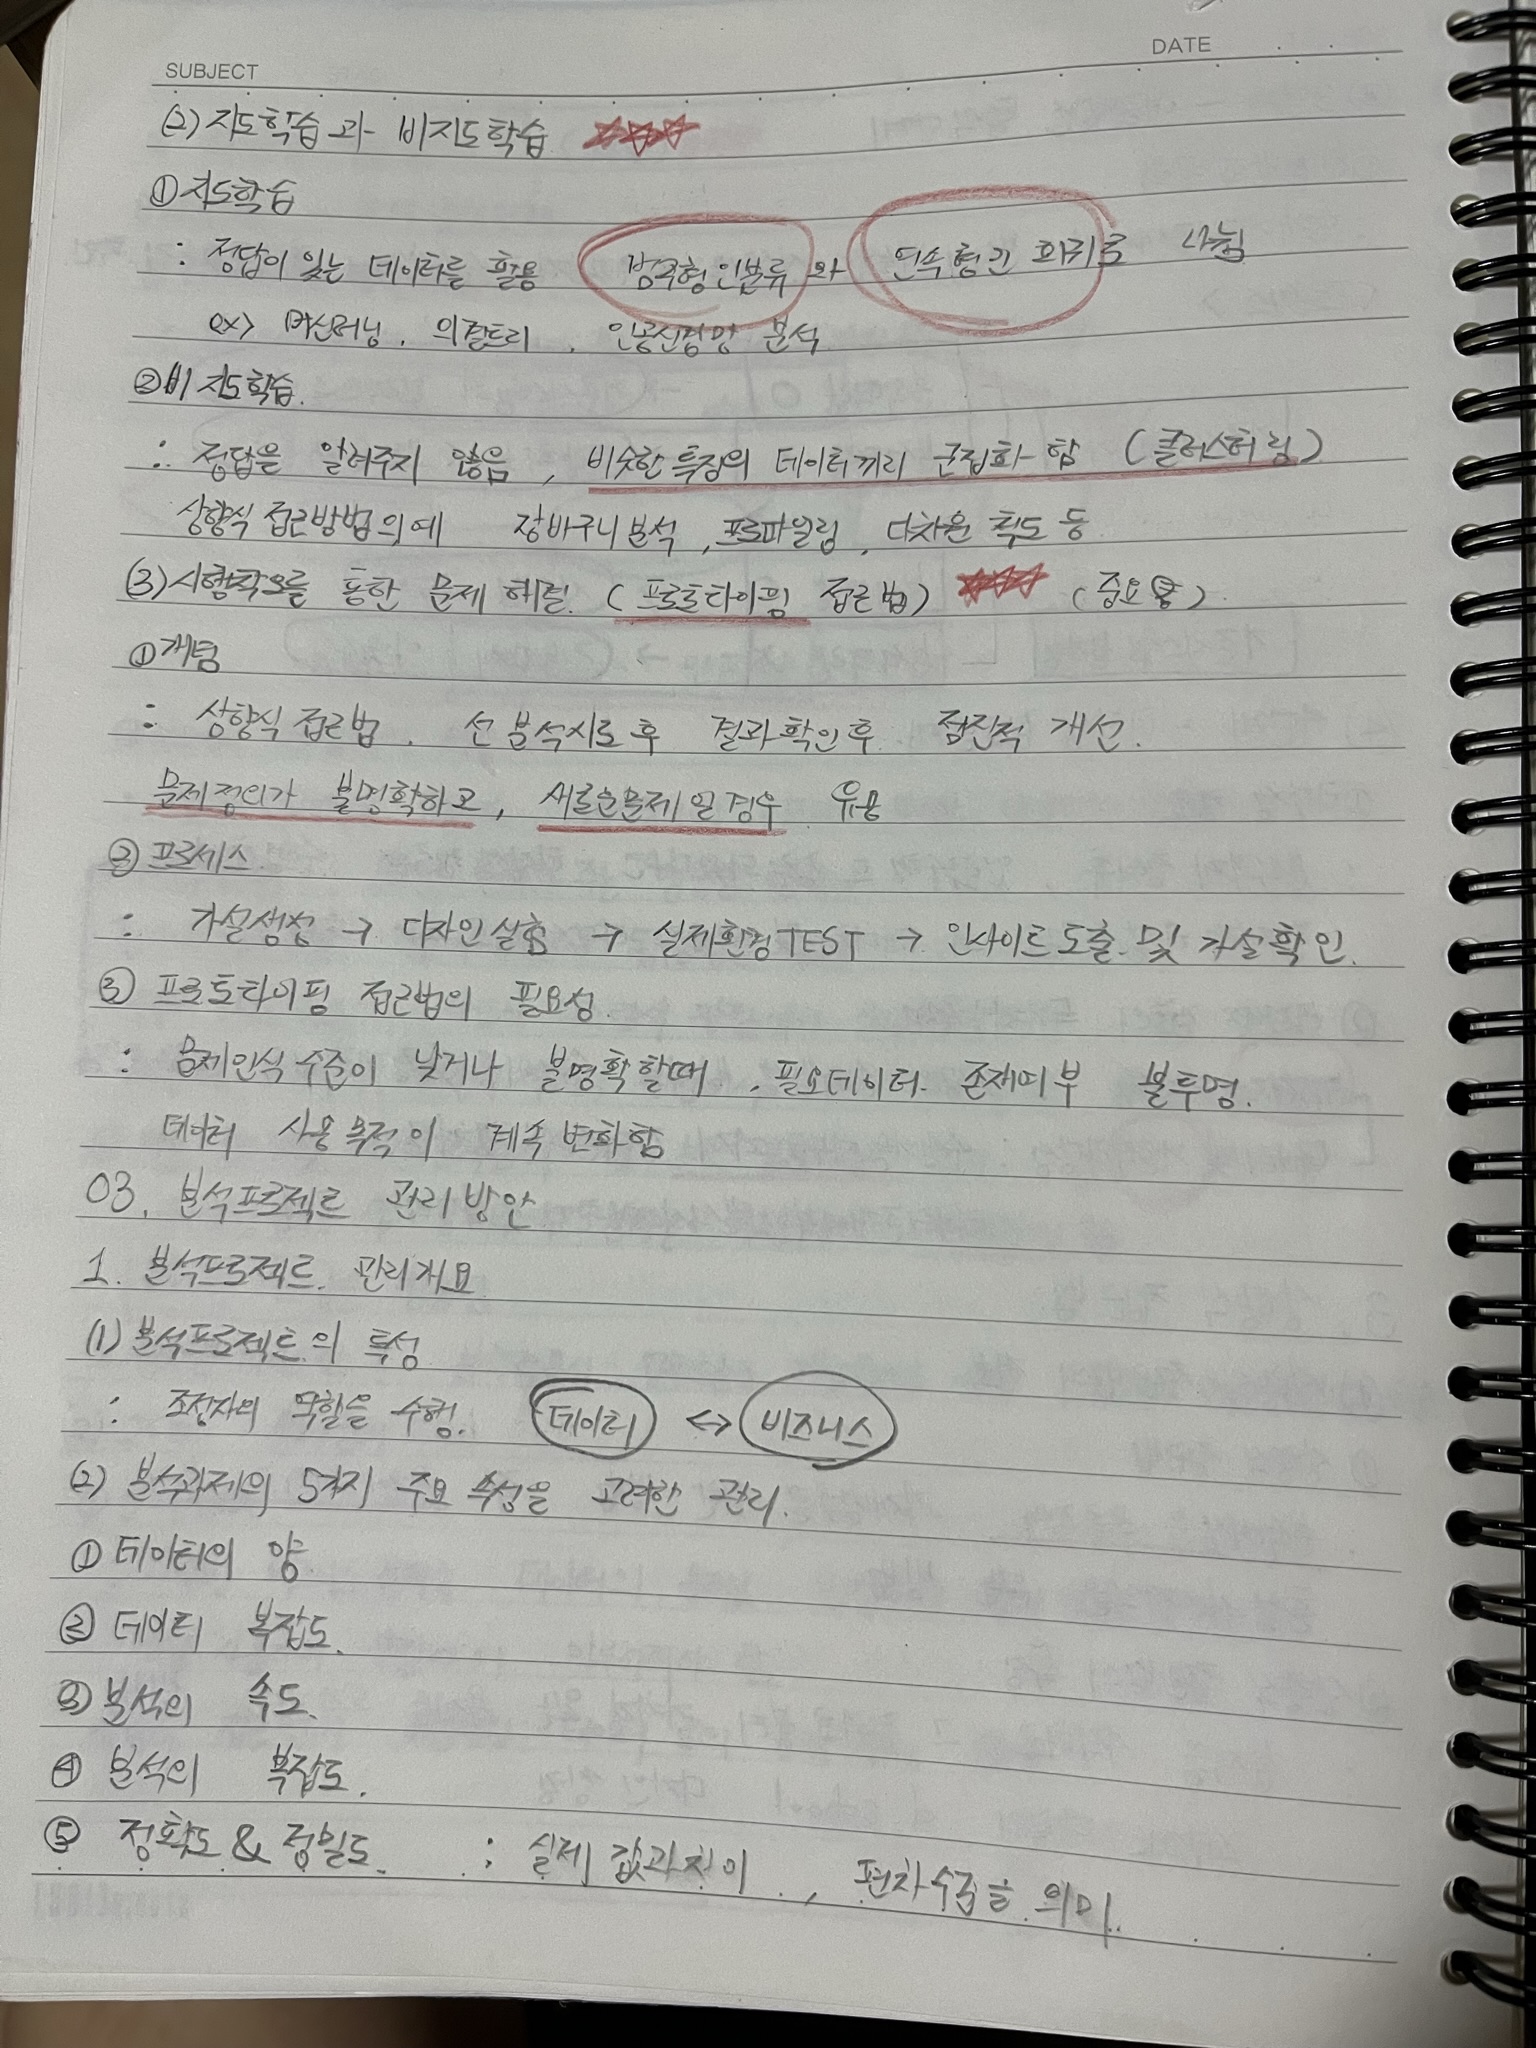 DATE
SUBJECT
(2) 지도학습과 비지도학습
① 지도학습
: 정답이 있는 데이터를 활용 범주형인분류 와 연속형인 회귀로 나뉨
ex> 머신러닝, 의결트리, 인공신경망 분석
② 비지도학습.
: 정답을 알려주지 않음, 비슷한 특징의 데이터끼리 군집화 함 (클러스터링)
상향식 접근방법의 예 장바구니분석, 프로파일링, 다차원 척도 등
(3) 시행착오를 통한 문제 해결. (프로토타이핑 접근법) (중요)
① 개념
: 상향식 접근법. 선 분석시도 후 결과확인후 점진적 개선.
문제정의가 불명확하고, 새로운문제일경우 유용
② 프로세스.
: 가설생성 → 디자인실험 → 실제환경TEST → 인사이트도출 및 가설확인.
③ 프로토타이핑 접근법의 필요성.
: 문제인식 수준이 낮거나 불명확할때, 필요데이터 존재여부 불투명.
데이터 사용 목적이 계속 변화함
03. 분석프로젝트 관리방안
1. 분석프로젝트 관리개요
(1) 분석프로젝트의 특성
: 조정자의 역할을 수행. 데이터 <-> 비즈니스
(2) 분석과제의 5가지 주요 속성을 고려한 관리.
① 데이터의 양
② 데이터 복잡도.
③ 분석의 속도.
④ 분석의 복잡도.
⑤ 정확도 & 정밀도. : 실제 값과차이, 편차수준을 의미.